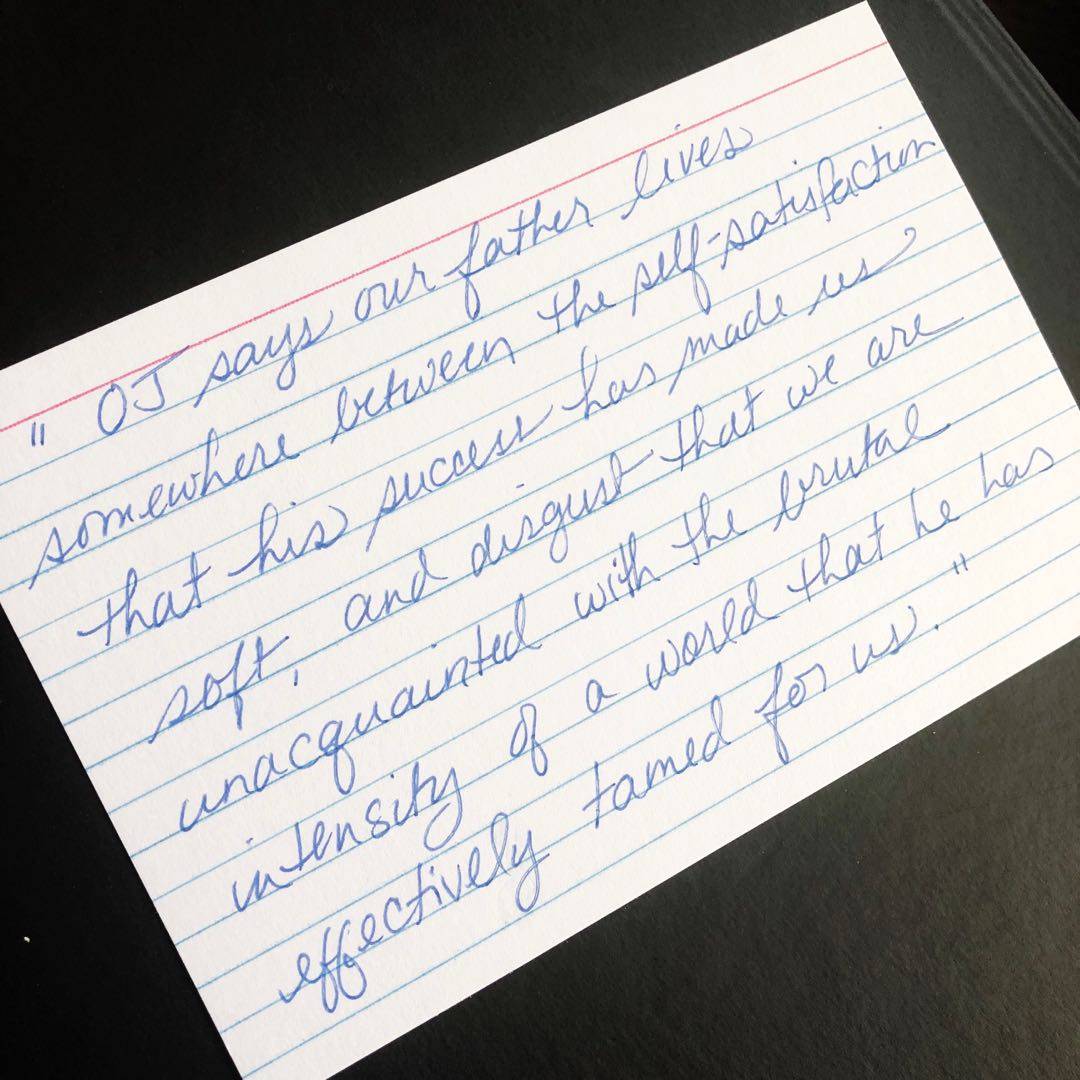 " OJ says our father lives
somewhere between the self-satisfaction
that his success has made us
soft, and disgust that we are
unacquainted with the brutal
intensity of a world that he has
effectively tamed for us. "